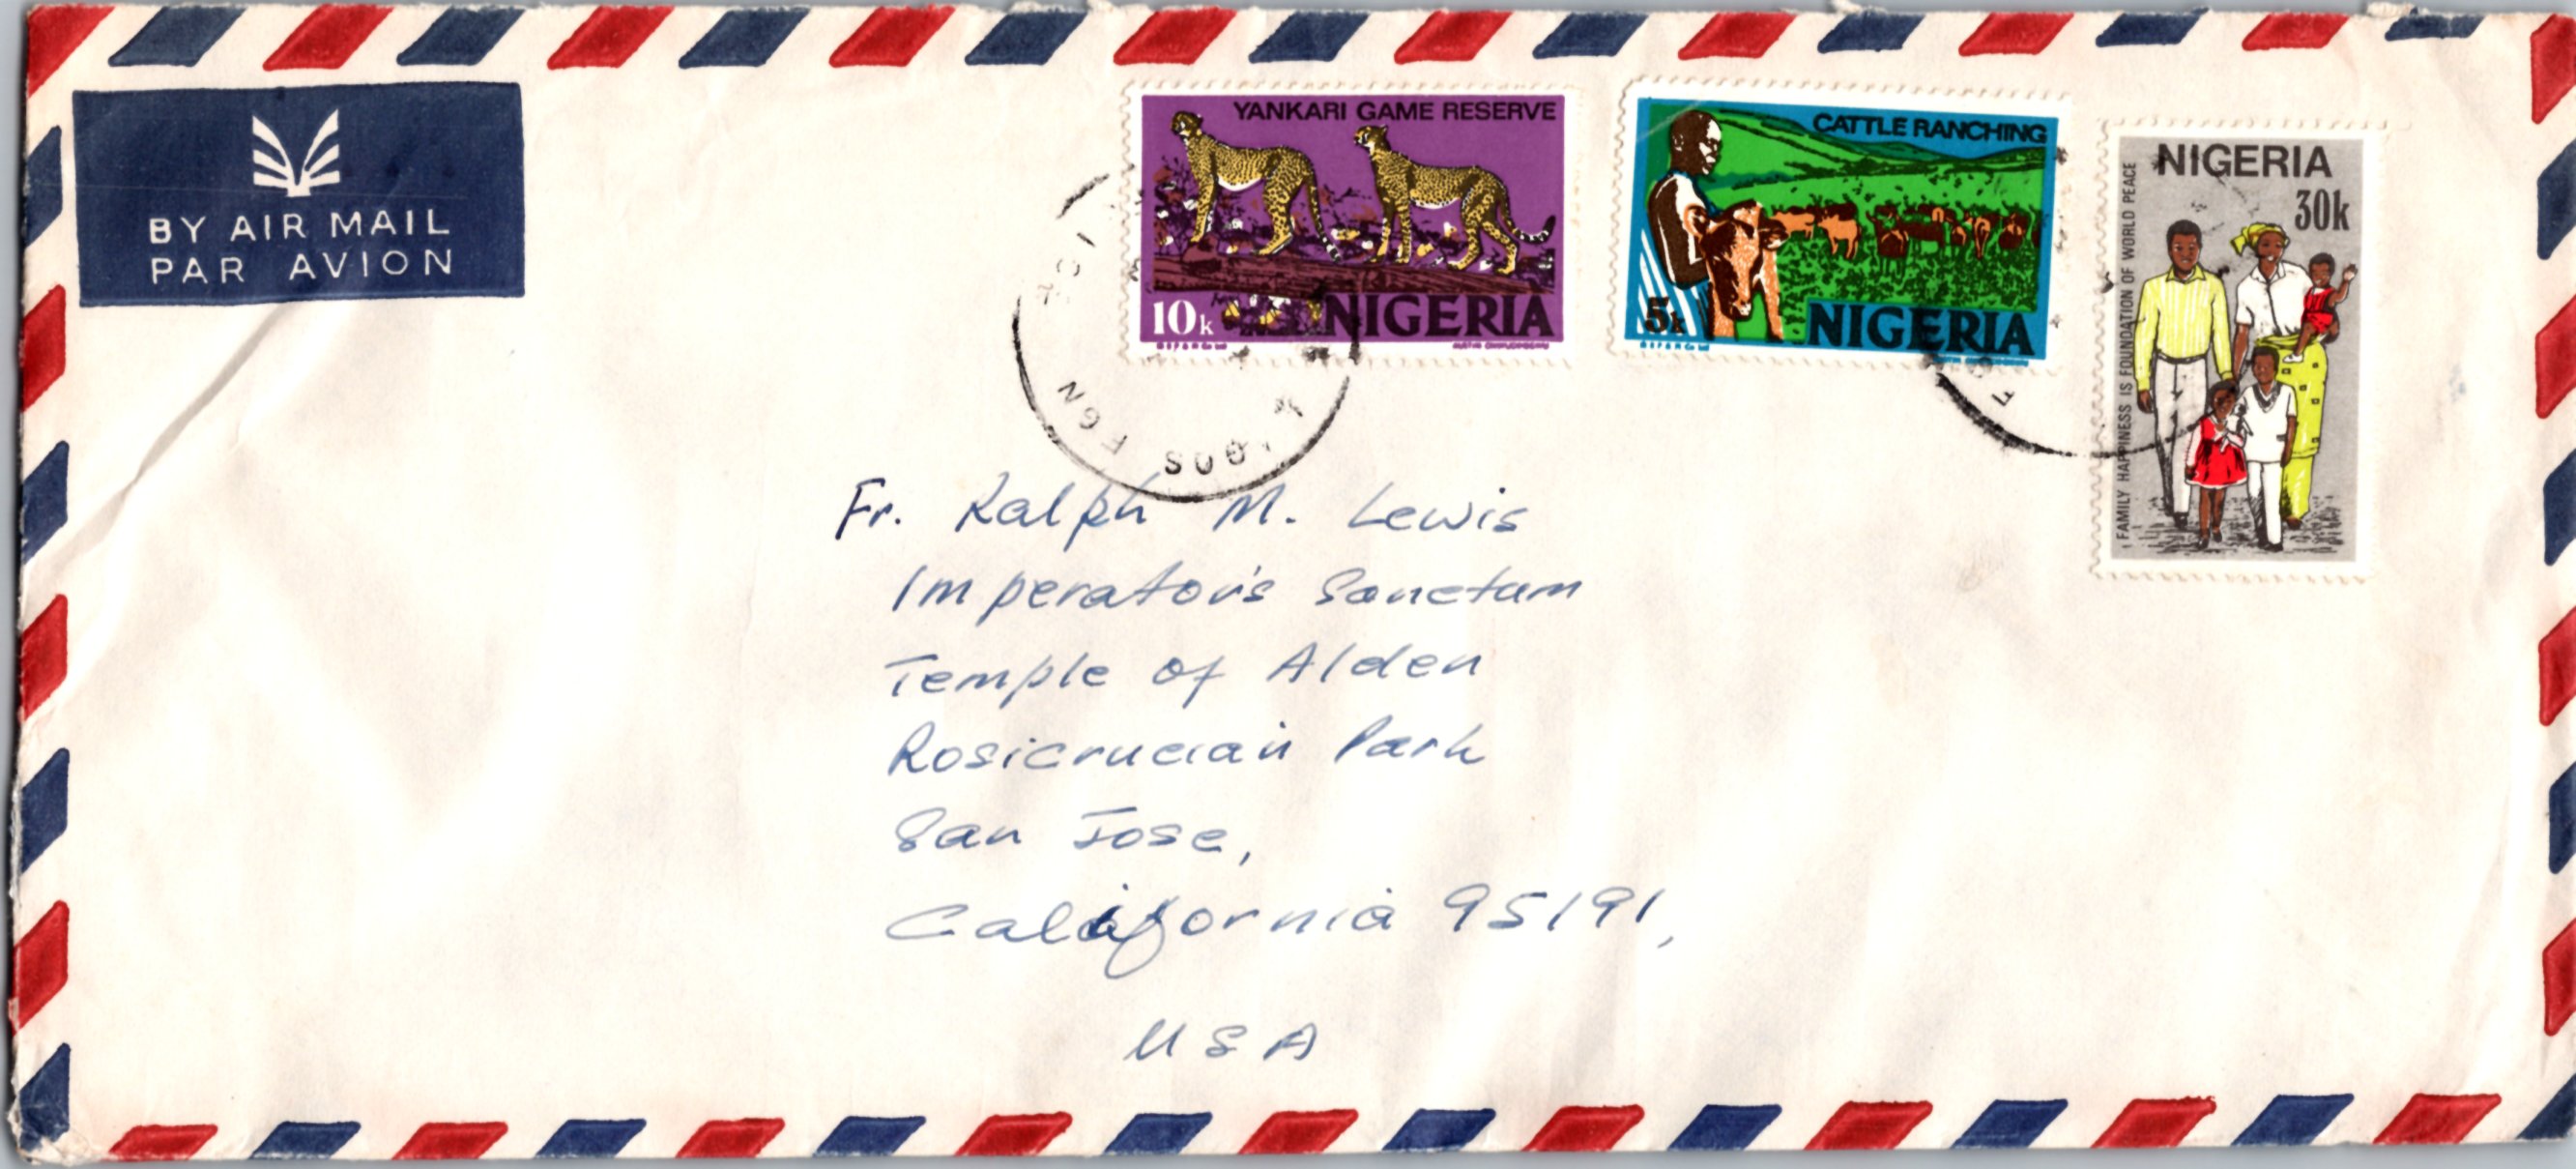 BY AIR MAIL
PAR AVION
YANKARI GAME RESERVE
10k NIGERIA
CATTLE RANCHING
5k NIGERIA
NIGERIA
30k
FAMILY HAPPINESS IS FOUNDATION OF WORLD PEACE
LAGOS FGN
Fr. Ralph M. Lewis
Imperator's Sanctum
Temple of Alden
Rosicrucian Park
San Jose,
California 95191,
USA